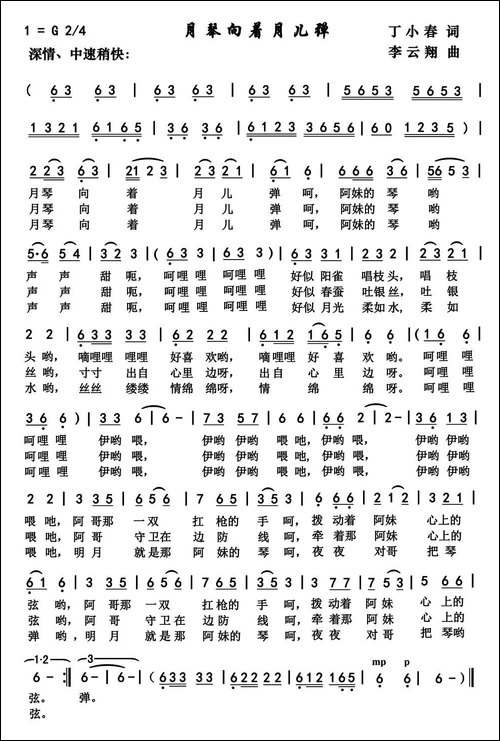 1 = G 2/4 月琴向着月儿弹 丁小春 词
深情、中速稍快： 李云翔 曲
( 63 63 | 63 63 | 63 63 | 5653 5653 |
1321 6165 | 63 63 | 6123 3653 | 60 012356 ) |
223 63 | 21 23 | 223 63 | 61 6 | 335 65 | 5653 |
月琴 向 着 月 儿 弹 呵, 阿妹的 琴 哟
月琴 向 着 月 儿 弹 呵, 阿妹的 琴 哟
月琴 向 着 月 儿 弹 呵, 阿妹的 琴 哟
5·6 54 | 32 3 | ( 63 3 63 3 ) | 63 31 | 232 2 | 12 |
声 声 甜 呃, 呵哩哩 呵哩哩 好似 阳雀 唱枝头, 唱 枝
声 声 甜 呃, 呵哩哩 呵哩哩 好似 春蚕 吐银丝, 吐 银
声 声 甜 呃, 呵哩哩 呵哩哩 好似 月光 柔如水, 柔 如
2 2 | 633 33 | 232 2 | 612 165 | 6 6 | ( 16 6
头 哟, 嘀哩哩 哩哩 好喜 欢哟, 嘀哩哩 好 喜 欢 哟。 呵哩哩
丝 哟, 寸寸 出自 心里 边呀, 出自 心 里 边 呀。 呵哩哩
水 哟, 丝丝 缕缕 情绵 绵呀, 情 绵 绵 呀。 呵哩哩
36 6 ) | 22 3 | 6 - | 73 57 | 66 | 56 66 | 2 | 2 - | 36 13 |
呵哩哩 伊哟 喂, 伊哟 伊哟 喂吔, 伊哟 伊哟 喂, 伊哟 伊哟
呵哩哩 伊哟 喂, 伊哟 伊哟 喂吔, 伊哟 伊哟 喂, 伊哟 伊哟
呵哩哩 伊哟 喂, 伊哟 伊哟 喂吔, 伊哟 伊哟 喂, 伊哟 伊哟
2 2 | 3 35 | 6 15 | 65 6 | 35 3 | 6 66 | 2 1 | 3 21 |
喂 吔, 阿哥那 一双 扛枪的 手 呵, 拨 动着 阿妹 心上的
喂 吔, 阿哥 守卫在 边防 线 呵, 牵 着那 阿妹 心上的
喂 吔, 明月 就是那 阿妹的 琴 呵, 夜夜 对哥 把琴
61 6 | 3 35 | 615 | 65 6 | 35 3 | 67 65 | 3 5 | 7 56 |
弦 哟, 阿哥那 一双 扛枪的 手 呵, 拨动着 阿妹 心 上的
弦 哟, 阿哥 守卫在 边防 线 呵, 牵动着 阿妹 心 上的
弹 哟, 明月 就是那 阿妹的 琴 呵, 夜夜 对哥 把琴哟
1·2 3 mp p
6 - :‖ 6 - | 6 - | ( 633 33 | 232 2 | 612 165 | 6 6 | 612 165 | 6 - | 6 - ) ‖
弦。 弹。
弦。